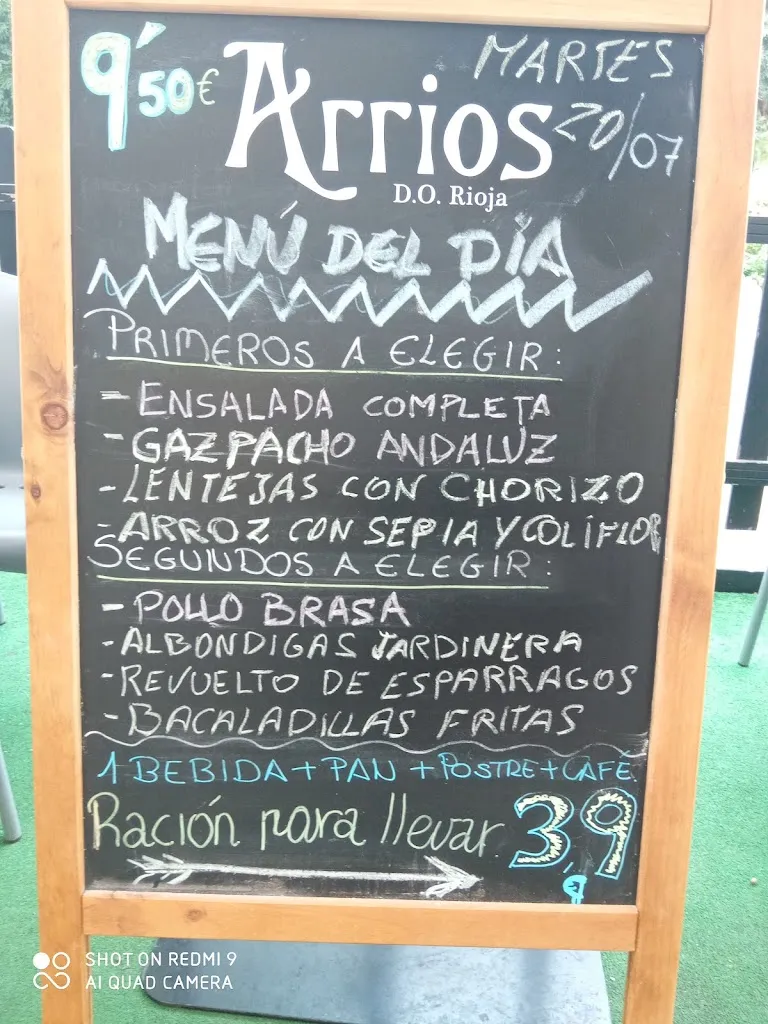 9'50€
Arrios
D.O. Rioja
MARTES
20/07
MENÚ DEL DÍA
PRIMEROS A ELEGIR:
- ENSALADA COMPLETA
- GAZPACHO ANDALUZ
- LENTEJAS CON CHORIZO
- ARROZ CON SEPIA Y COLIFLOR
SEGUNDOS A ELEGIR:
- POLLO BRASA
- ALBONDIGAS JARDINERA
- REVUELTO DE ESPARRAGOS
- BACALADILLAS FRITAS
1 BEBIDA + PAN + POSTRE + CAFÉ
Ración para llevar 3,9
€
SHOT ON REDMI 9
AI QUAD CAMERA